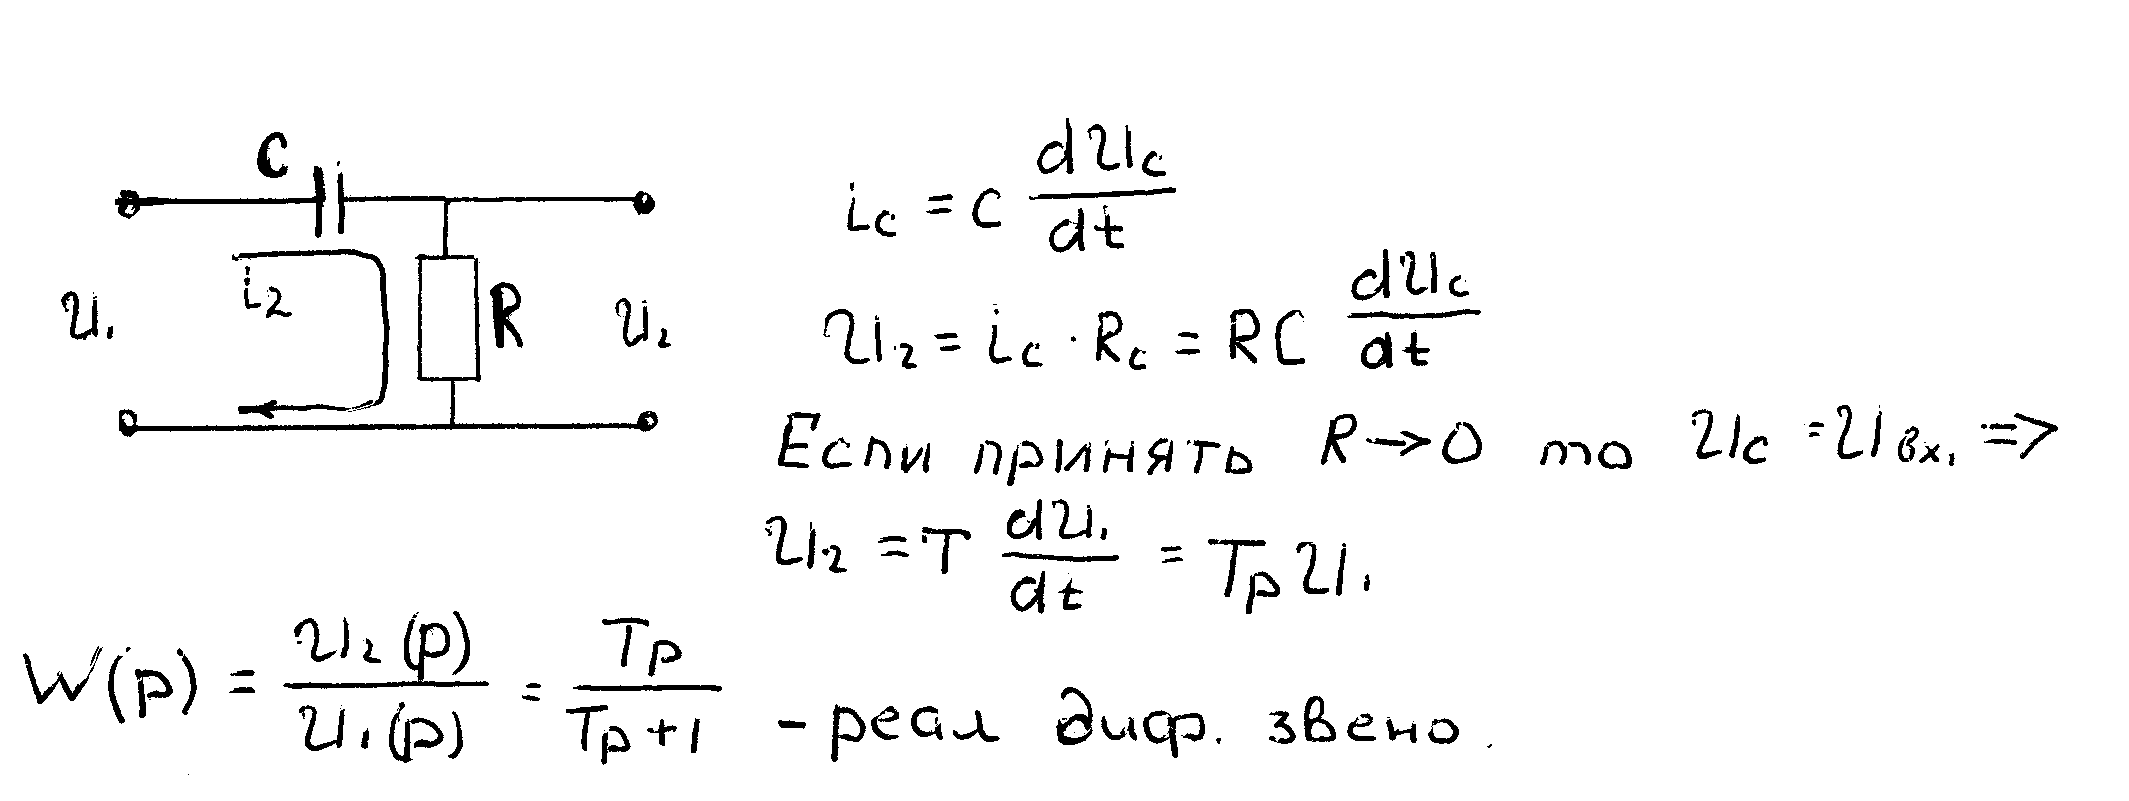 C
i₂
U₁
R
U₂
i_c = C dU_c/dt
U₂ = i_c · R_c = RC dU_c/dt
Если принять R → 0 то U_c = U_вх₁ =>
U₂ = T dU₁/dt = Tp U₁
W(p) = U₂(p)/U₁(p) = Tp/(Tp+1) - реал диф. звено.